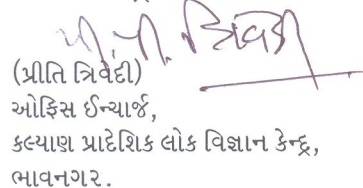 પી. પી. ત્રિવેદી
(પ્રીતિ ત્રિવેદી)
ઓફિસ ઈન્ચાર્જ,
કલ્યાણ પ્રાદેશિક લોક વિજ્ઞાન કેન્દ્ર,
ભાવનગર.